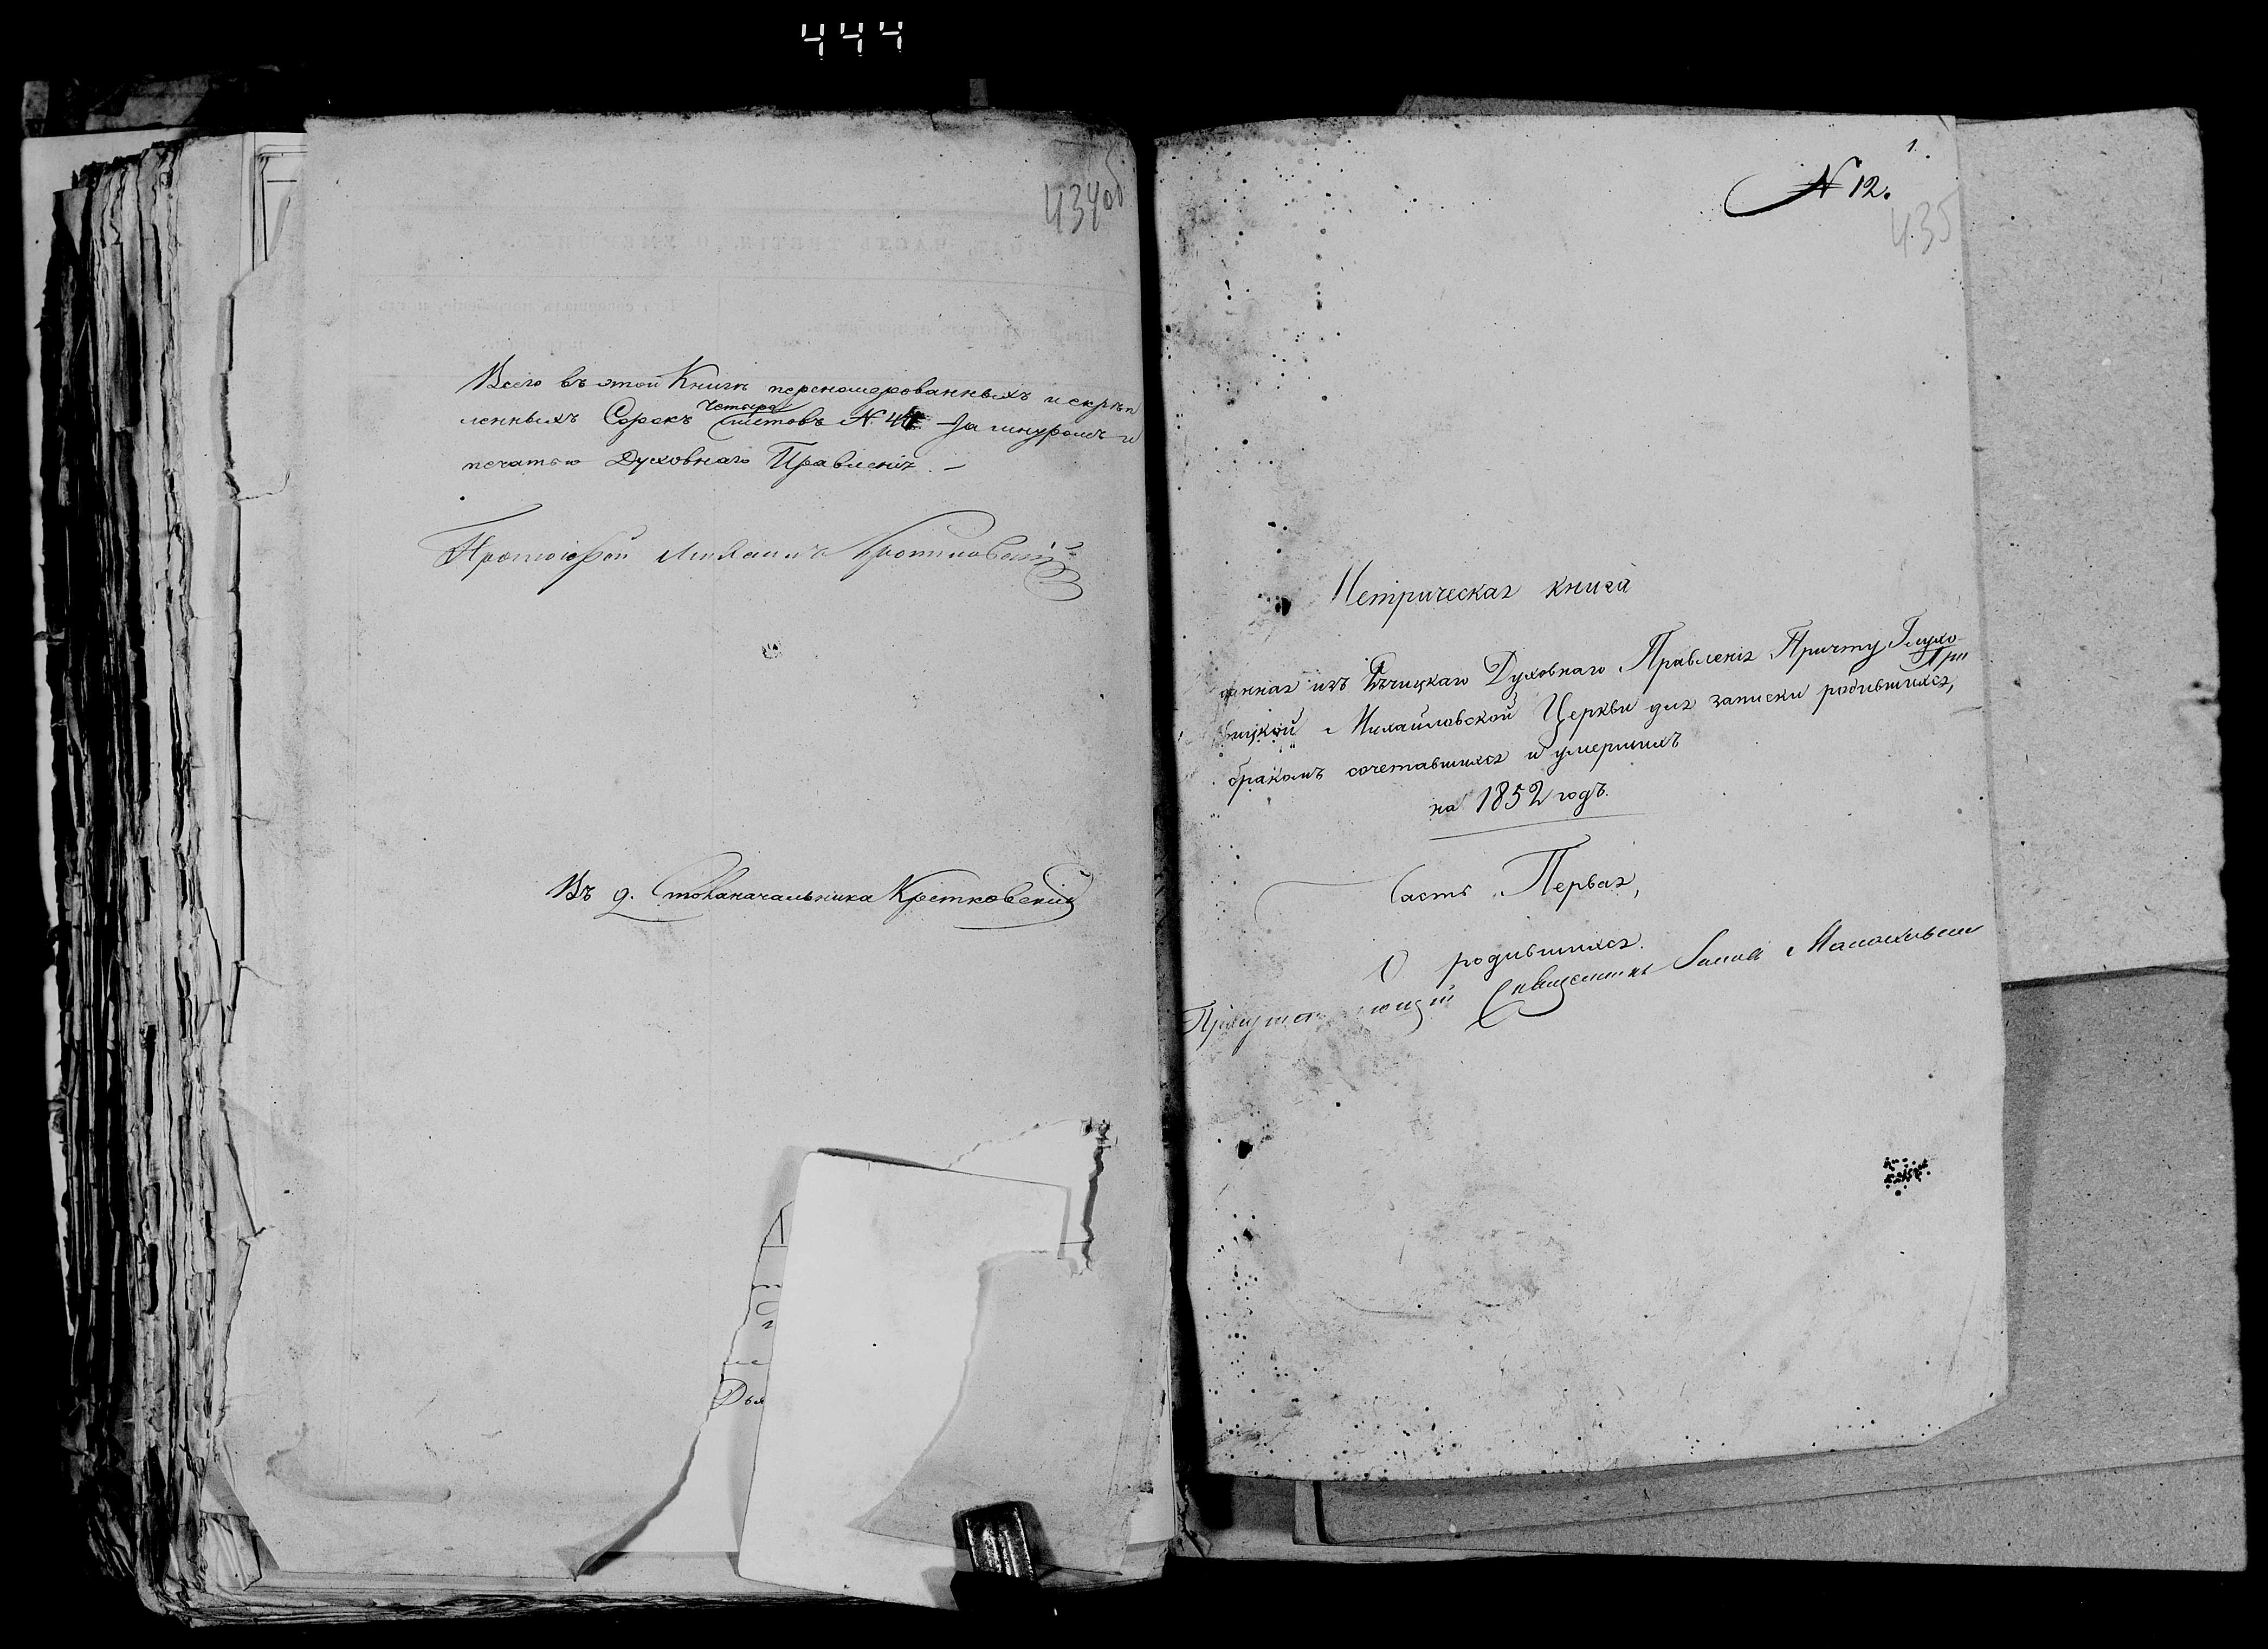 444
434об
Всего въ этой Книгѣ переномерованныхъ и скрѣп
ленныхъ Сорокъ четыре листовъ N. 44 за шнуромъ и
печатью Духовнаго Правленія. –
Протоіерей Михаилъ
Въ д. Столоначальника Кретковскій
1.
N 12.
435
Метрическая книга
данная изъ Рѣчицкаго Духовнаго Правленія Причту Глухо-
вицкой Михайловской Церкви для записки родившихся,
бракомъ сочетавшихся и умершихъ
на 1852 годъ.
Часть Первая,
О родившихся.
Священникъ